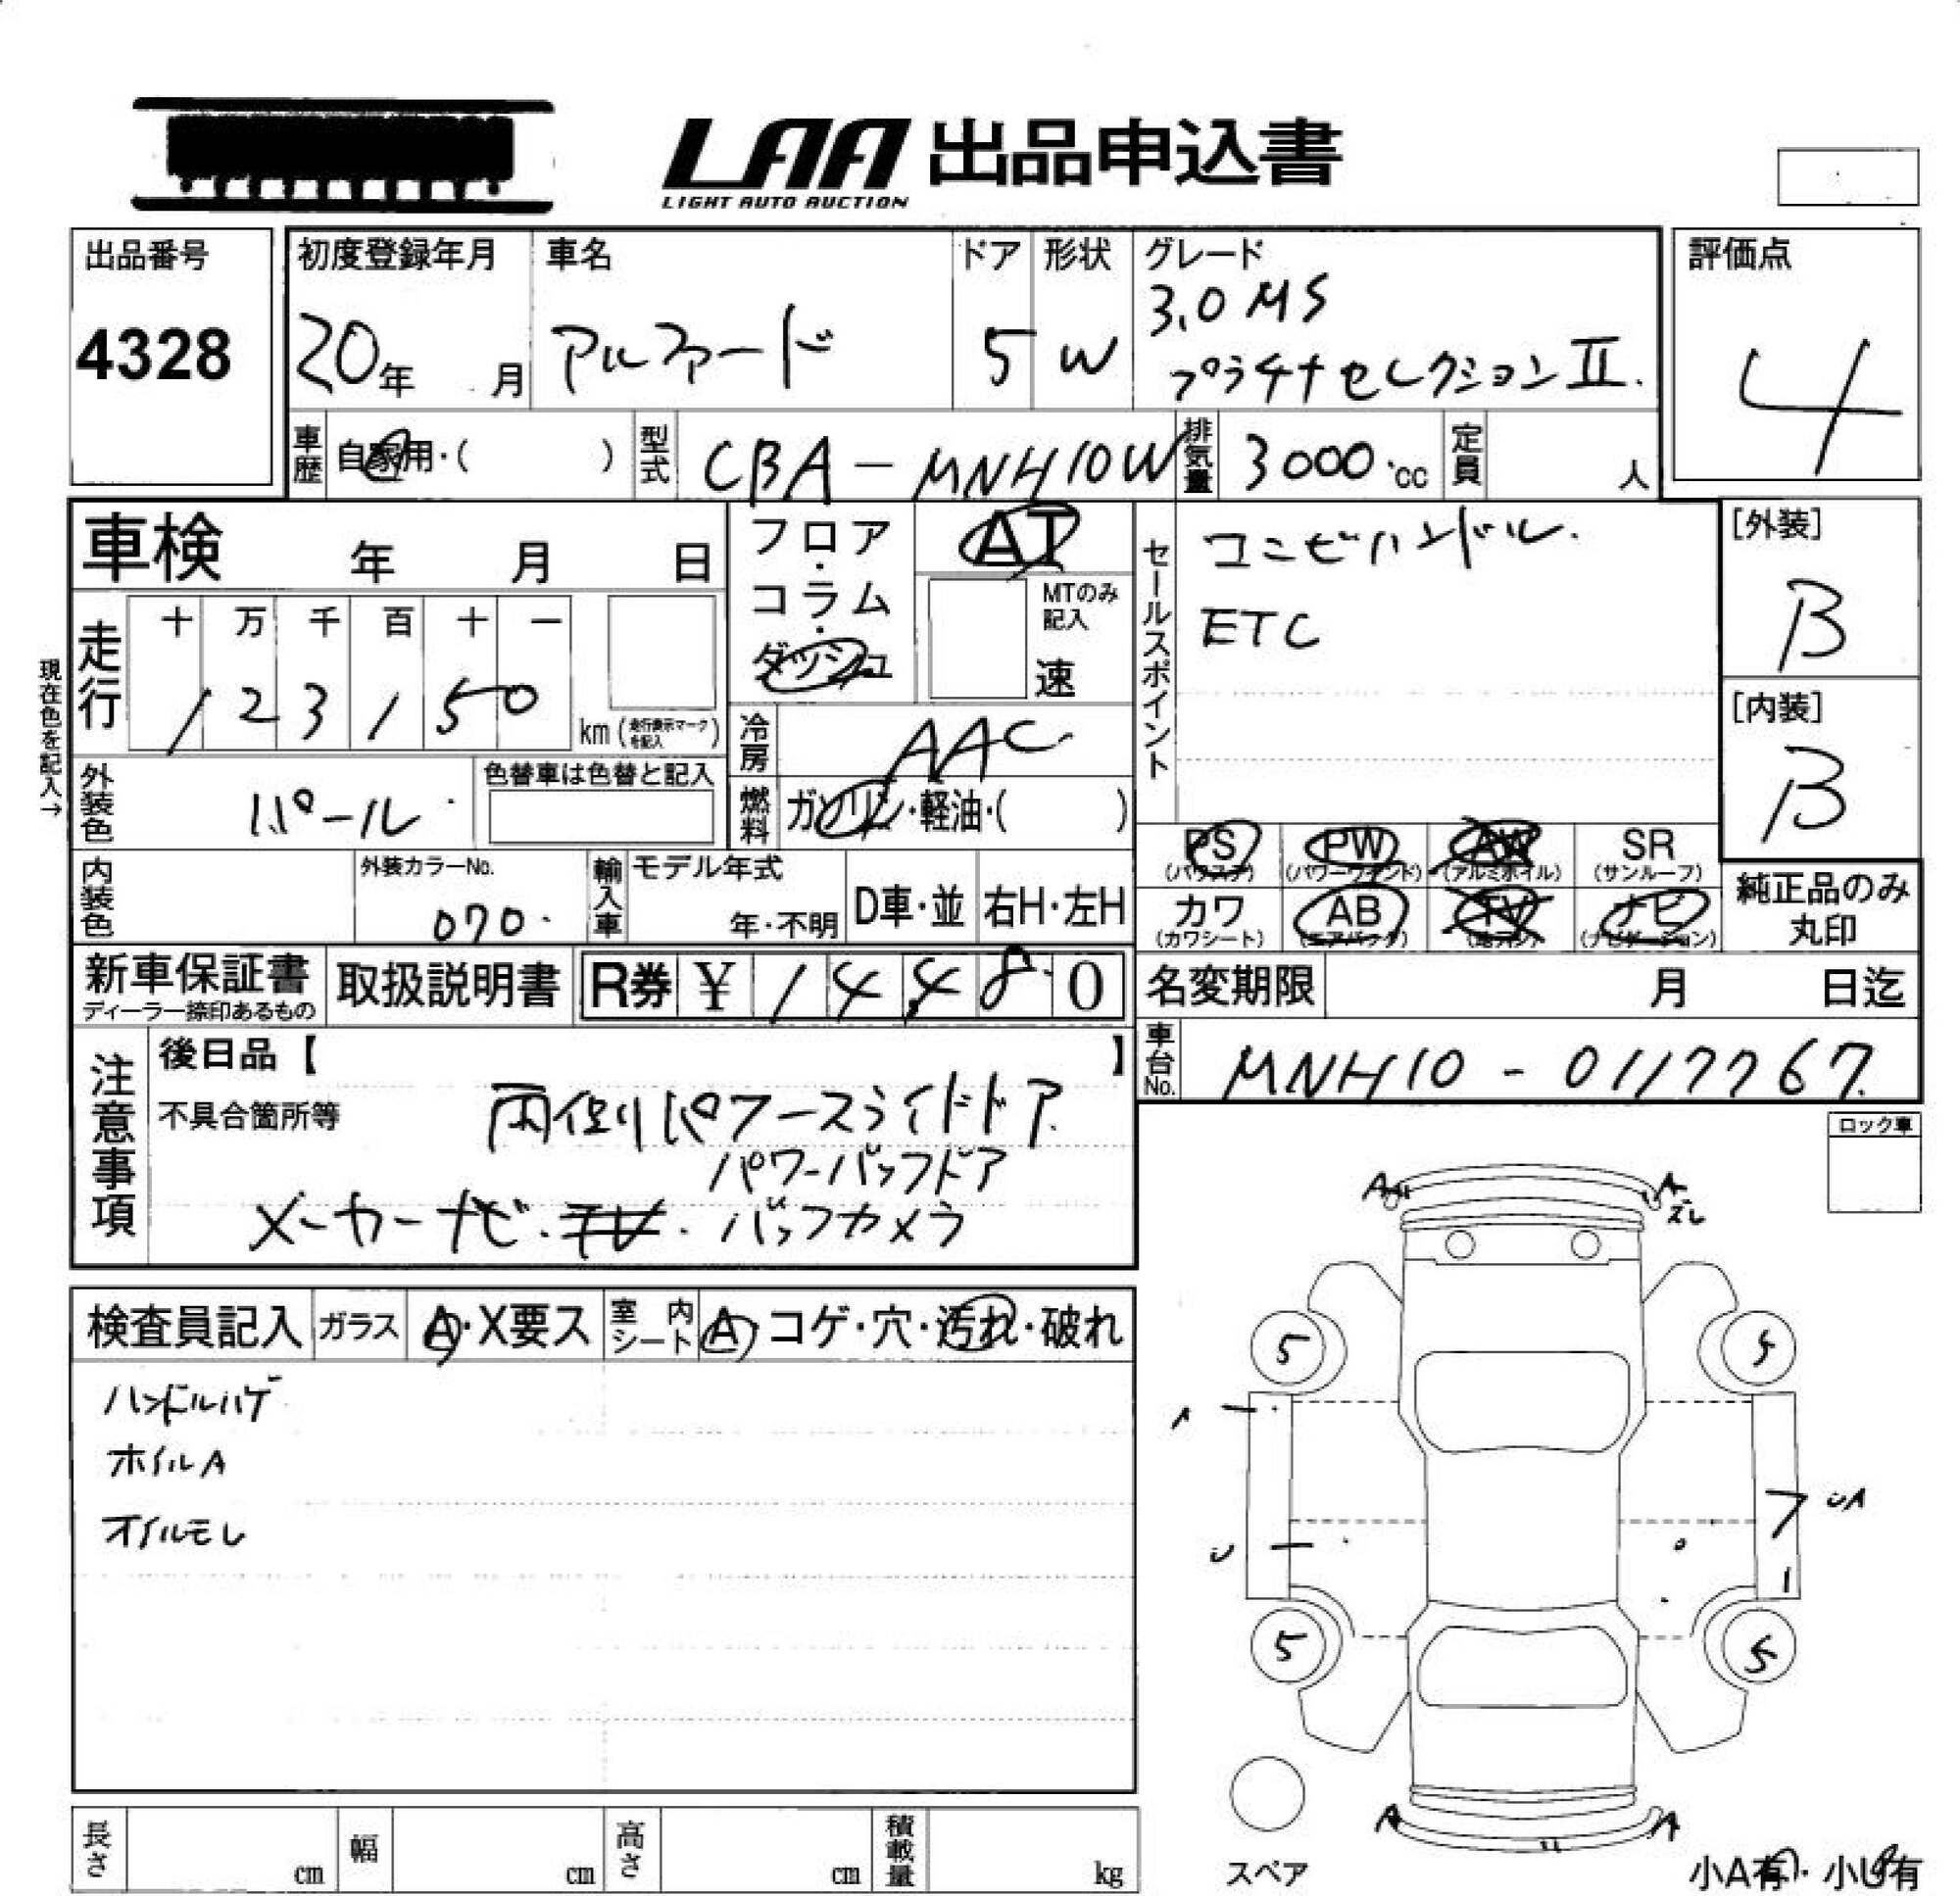 LAA 出品申込書
LIGHT AUTO AUCTION
出品番号 初度登録年月 車名 ドア 形状 グレード 評価点
4328 20年 月 アルファード 5 W 3.0 MS 4
プラチナセレクションⅡ.
車歴 自家用・( ) 型式 CBA-MNH10W 排気量 3000 cc 定員 人
車検 年 月 日
フロア・コラム・ダッシュ
AT
MTのみ記入
速
セールスポイント
コンビハンドル.
ETC
[外装]
B
[内装]
B
現在色を記入→
走行 十 万 千 百 十 一
1 2 3 1 5 0 km (走行表示マークを記入)
冷房 AAC
外装色 パール 色替車は色替と記入
燃料 ガソリン・軽油・( )
PS (パワステ) PW (パワーウインド) AW (アルミホイル) SR (サンルーフ)
カワ (カワシート) AB (エアバッグ) TV (地デジ) ナビ (ナビゲーション)
純正品のみ丸印
内装色 外装カラーNo. 070. 輸入車 モデル年式 年・不明 D車・並 右H・左H
新車保証書 取扱説明書 R券 ¥ 1 4 4 8 0
ディーラー捺印あるもの
名変期限 月 日迄
車台No. MNH10-0117767.
注意事項
後日品【 】
不具合箇所等 両側パワースライドドア
パワーバックドア
メーカーナビ・テレビ・バックカメラ
ロック車
A A
ズレ
検査員記入 ガラス A・X要ス 室内シート A コゲ・穴・汚れ・破れ
ハンドルハゲ
ホイルA
オイルモレ
5 5
A
UA
U
5 5
A A
スペア
長さ cm 幅 cm 高さ cm 積載量 kg
小A有・小U有